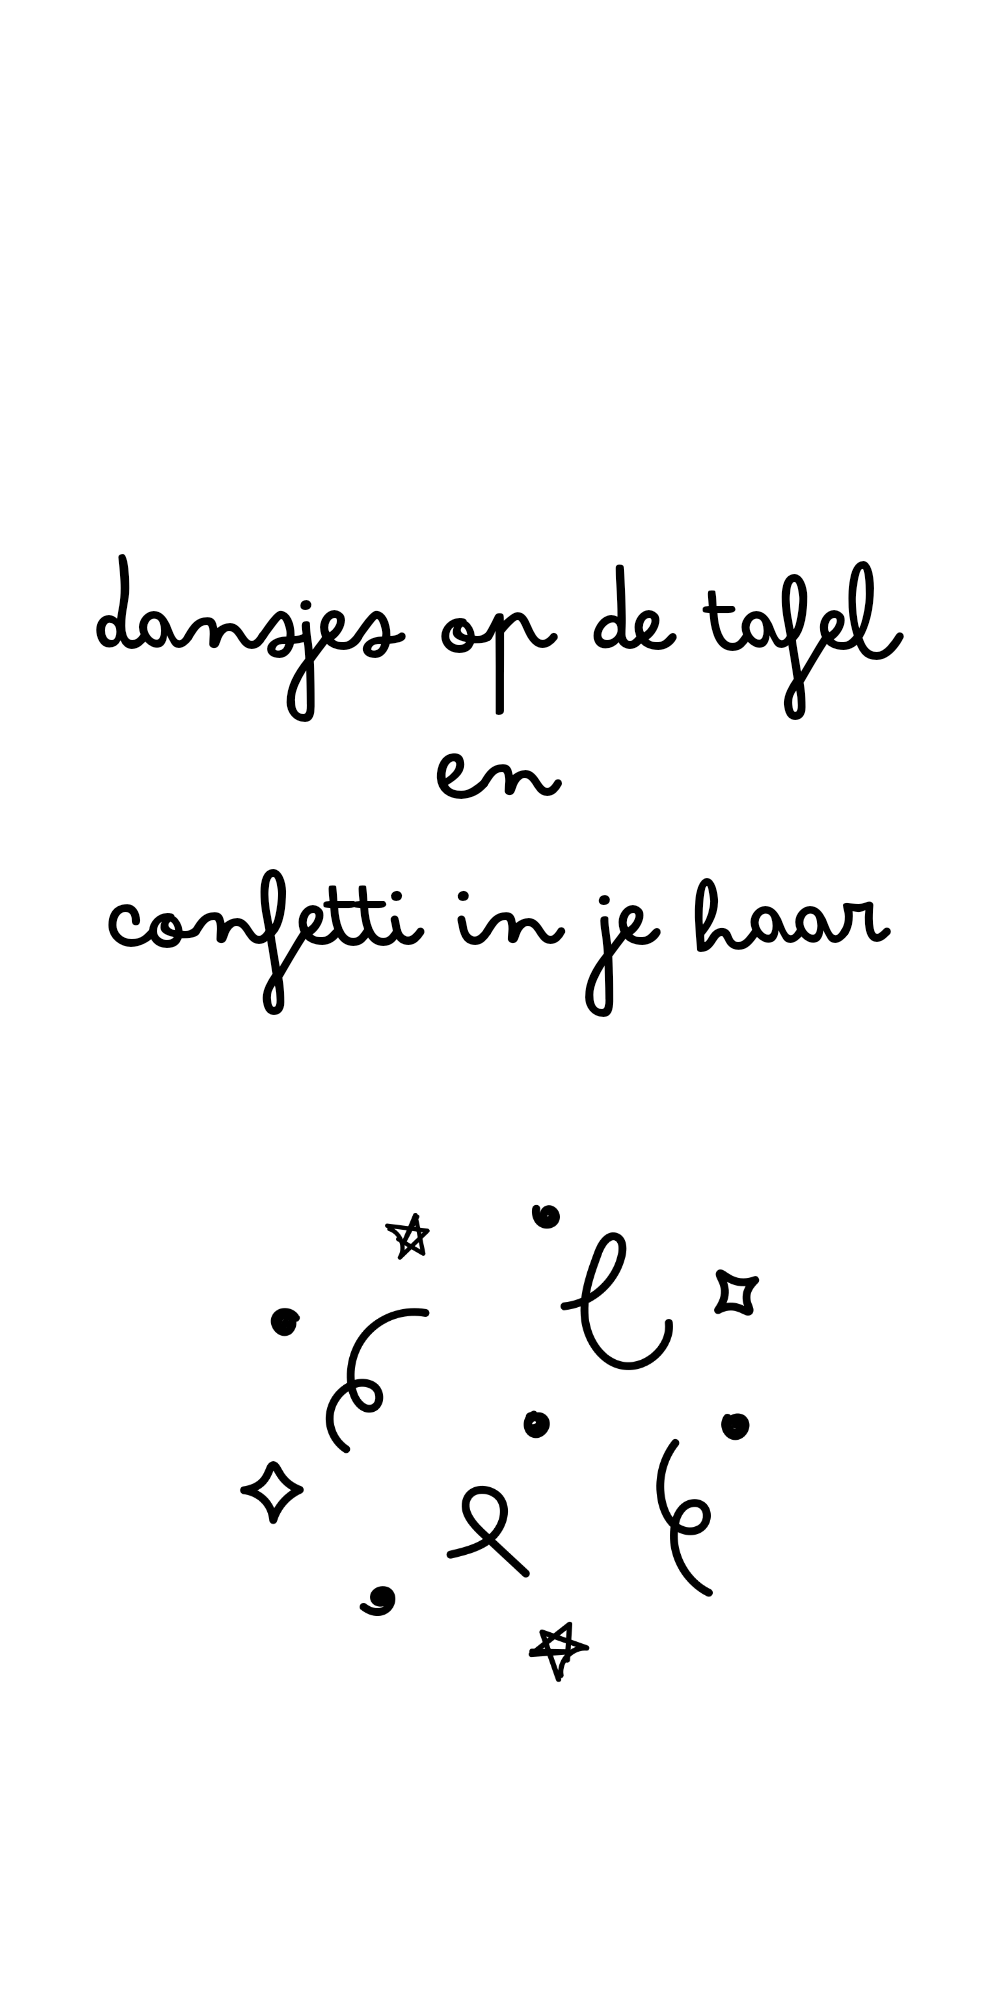 dansjes op de tafel
en
confetti in je haar